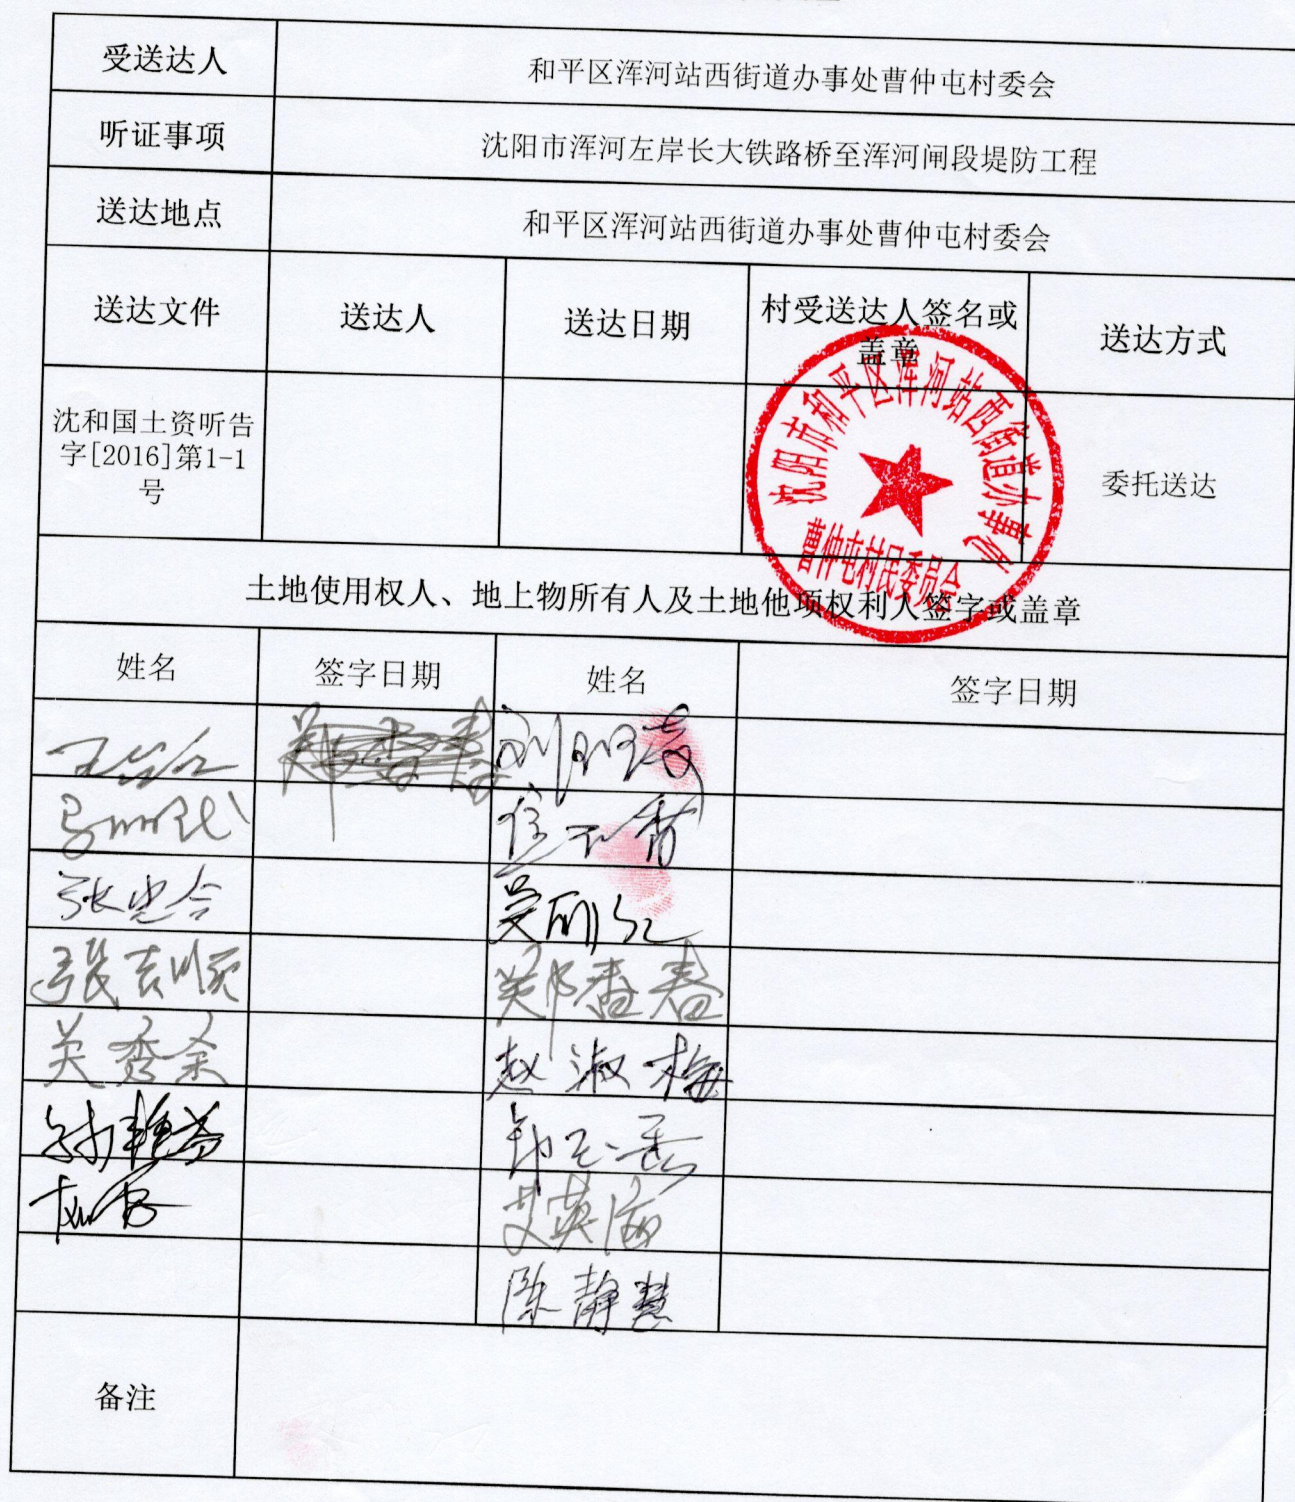 受送达人 和平区浑河站西街道办事处曹仲屯村委会
听证事项 沈阳市浑河左岸长大铁路桥至浑河闸段堤防工程
送达地点 和平区浑河站西街道办事处曹仲屯村委会
送达文件 送达人 送达日期 村受送达人签名或 送达方式
盖章
沈和国土资听告
字[2016]第1-1
号
委托送达
沈阳市和平区浑河站西街道办事处
曹仲屯村民委员会
土地使用权人、地上物所有人及土地他项权利人签字或盖章
姓名 签字日期 姓名 签字日期
吴丽红
张吉顺 郑香春
关秀余 赵淑梅
孙艳芬
艾英海
陈静慧
备注